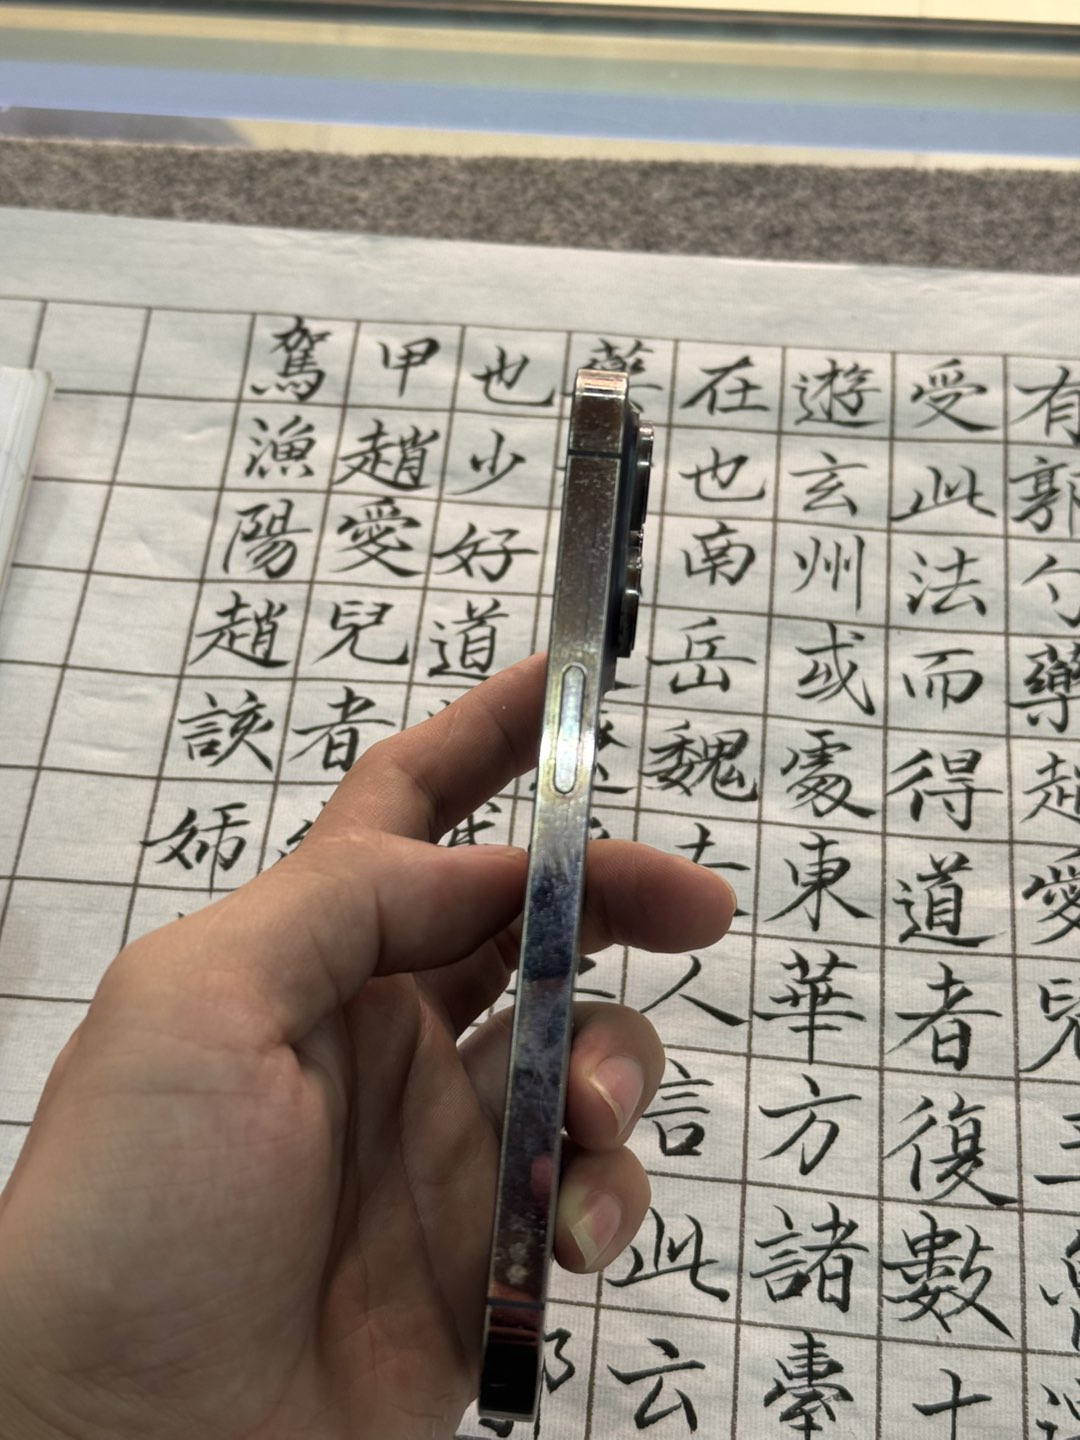 有郭勺藥趙愛兒
受此法而得道者復數十
遊玄州或處東華方諸臺
在也南岳魏人言此云
藥
也少好道
甲趙愛兒者
駕漁陽趙該姊